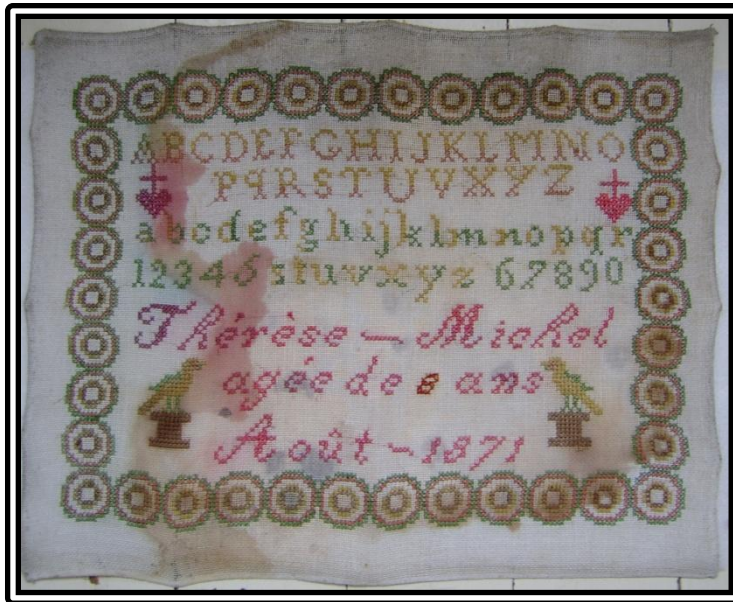 ABCDEFGHIJKLMNO
PQRSTUVXYZ
abcdefghijklmnopqr
12345 stuvxyz 67890
Thérèse - Michel
agée de 8 ans
Août - 1871